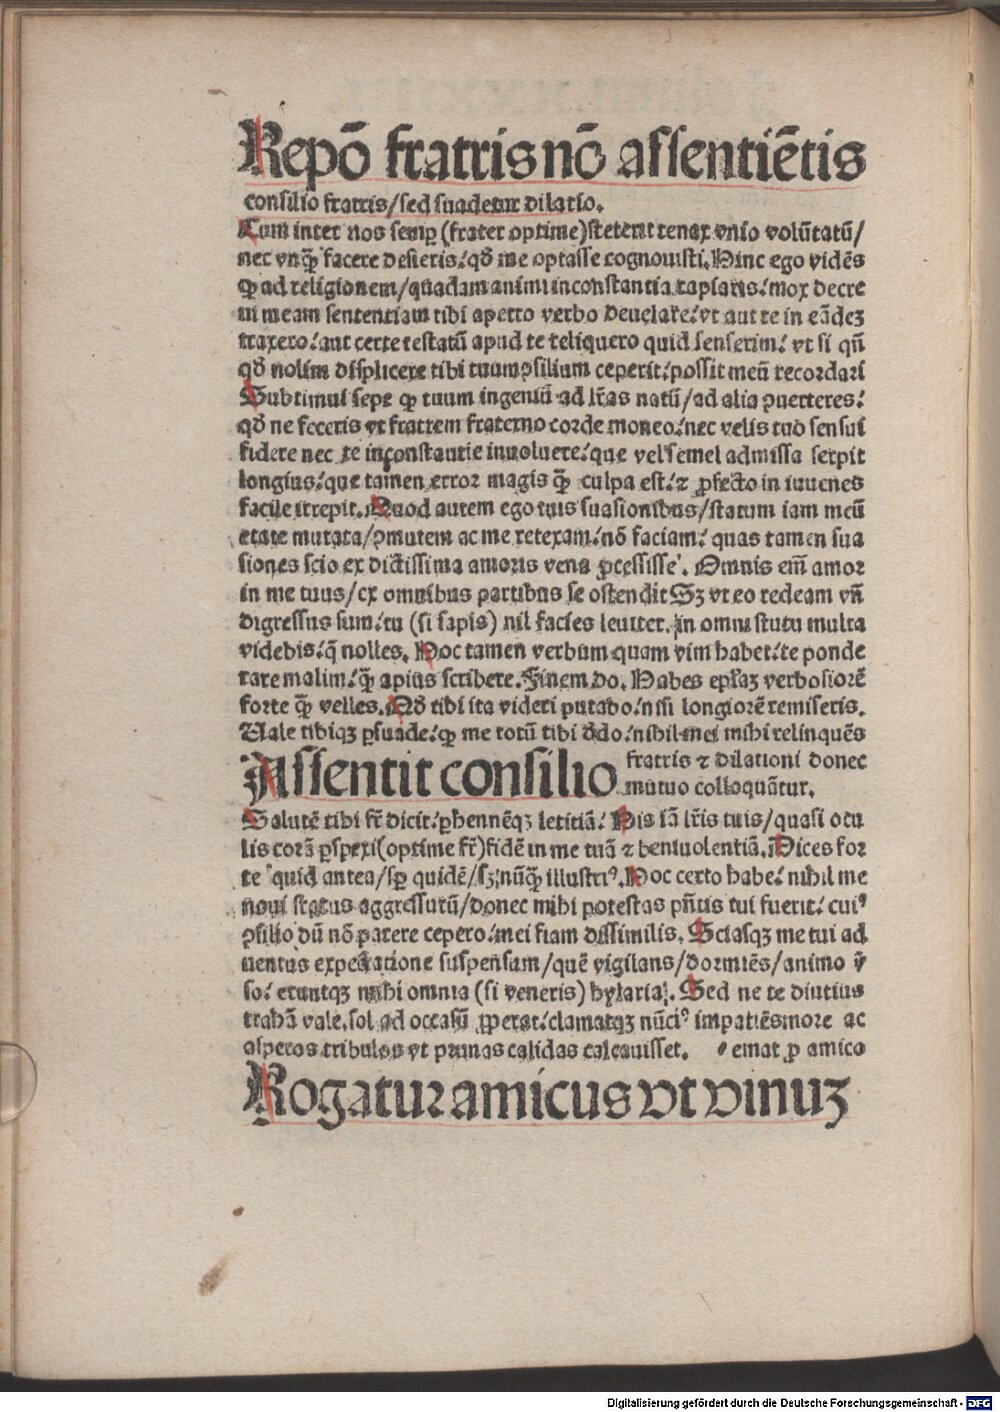 Repō fratris nō assentiētis
consilio fratris/sed suadetur dilatio.
Cum inter nos semꝑ (frater optime)steterit tenax vnio volūtatū/
nec vnq̄ꝫ facere desieris: qđ me optasse cognouisti. Hinc ego vidēs
ꝙ ad religionem/quadam animi inconstantia rapiaris: mox decre
ui meam sententiam tibi aperto verbo deuelare: vt aut te in eādeꝫ
traxero: aut certe testatū apud te reliquero quid senserim: vt si qñ
qđ nolim displicere tibi tuum ꝯsilium ceperit: possit meū recordari
Subtimui sepe ꝙ tuum ingeniū ad lr̄as natū/ad alia ꝯuerteres:
qđ ne feceris vt fratrem fraterno corde moneo: nec velis tuo sensui
fidere nec te inconstantie inuoluere: que vel semel admissa serpit
longius: que tamen error magis q̄ꝫ culpa est: ⁊ ꝓfecto in iuuenes
facile irrepit. Quod autem ego tuis suasionibus/statum iam meū
etate mutata/ꝯmutem ac me retexam: nō faciam: quas tamen sua
siones scio ex dictissima amoris vena ꝓcessisse. Omnis em̄ amor
in me tuus/ex omnibus partibus se ostendit Sꝫ vt eo redeam vñ
digressus sum: tu (si sapis) nil facies leuiter. in omni statu multa
videbis: q̄ nolles. Hoc tamen verbum quam vim habet: te ponde
rare malim: q̄ꝫ apius scribere. Finem do. Habes epl̄aꝫ verbosiorē
forte q̄ꝫ velles. Qđ tibi ita videri putabo: nisi longiorē remiseris.
Uale tibiqꝫ ꝑsuade: ꝙ me totū tibi dedo: nihil mei mihi relinquēs
Assentit consilio fratris ⁊ dilationi donec
mutuo colloquātur.
Salutē tibi fr̄ dicit: ꝑhennēqꝫ letitiā: His iā lr̄is tuis/quasi ocu
lis corā ꝑspexi(optime fr̄)fidē in me tuā ⁊ beniuolentiā. Dices for
te quid antea/sꝑ quidē/sꝫ nūq̄ꝫ illustriꝰ. Hoc certo habe: nihil me
noui status aggressurū/donec mihi potestas pñtis tui fuerit: cuiꝰ
ꝯsilio dū nō parere cepero: mei fiam dissimilis. Sciasqꝫ me tui ad
uentus expectatione suspensum/quē vigilans/dormiēs/animo v̄
so: eruntqꝫ mihi omnia (si veneris) hylaria. Sed ne te diutius
trahā vale. sol ad occasū ꝓperat: clamatqꝫ nūciꝰ impatiēs more ac
asperos tribulos vt prunas calidas calcauisset. emat ꝓ amico
Rogatur amicus vt vinuꝫ
Digitalisierung gefördert durch die Deutsche Forschungsgemeinschaft - DFG